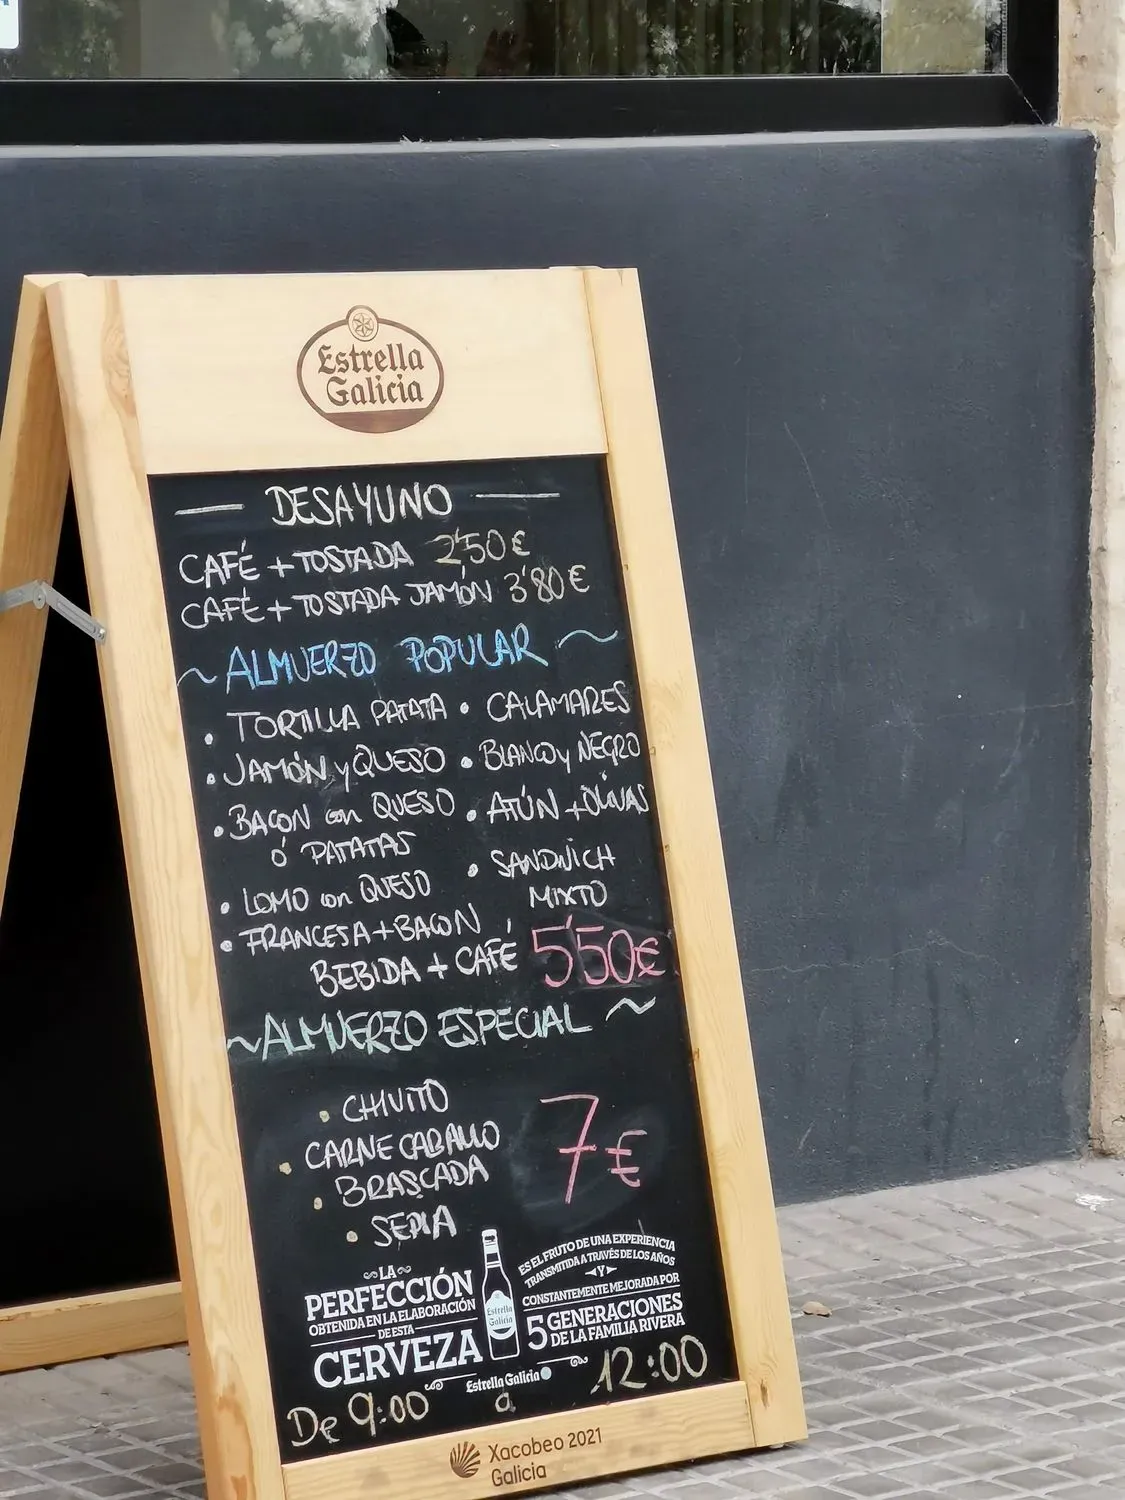 Estrella
Galicia
DESAYUNO
CAFÉ + TOSTADA 2'50 €
CAFÉ + TOSTADA JAMÓN 3'80 €
~ ALMUERZO POPULAR ~
• TORTILLA PATATA • CALAMARES
• JAMÓN y QUESO • BLANCO y NEGRO
• BACON con QUESO • ATÚN + OLIVAS
Ó PATATAS
• SANDWICH
MIXTO
• LOMO con QUESO
• FRANCESA + BACON
BEBIDA + CAFÉ 5'50€
~ ALMUERZO ESPECIAL ~
• CHIVITO
• CARNE CABALLO
• BRASCADA
• SEPIA
7€
LA
PERFECCIÓN
OBTENIDA EN LA ELABORACIÓN
DE ESTA
CERVEZA
Estrella
Galicia
ES EL FRUTO DE UNA EXPERIENCIA
TRANSMITIDA A TRAVÉS DE LOS AÑOS
Y
CONSTANTEMENTE MEJORADA POR
5 GENERACIONES
DE LA FAMILIA RIVERA
Estrella Galicia
De 9:00 a 12:00
Xacobeo 2021
Galicia